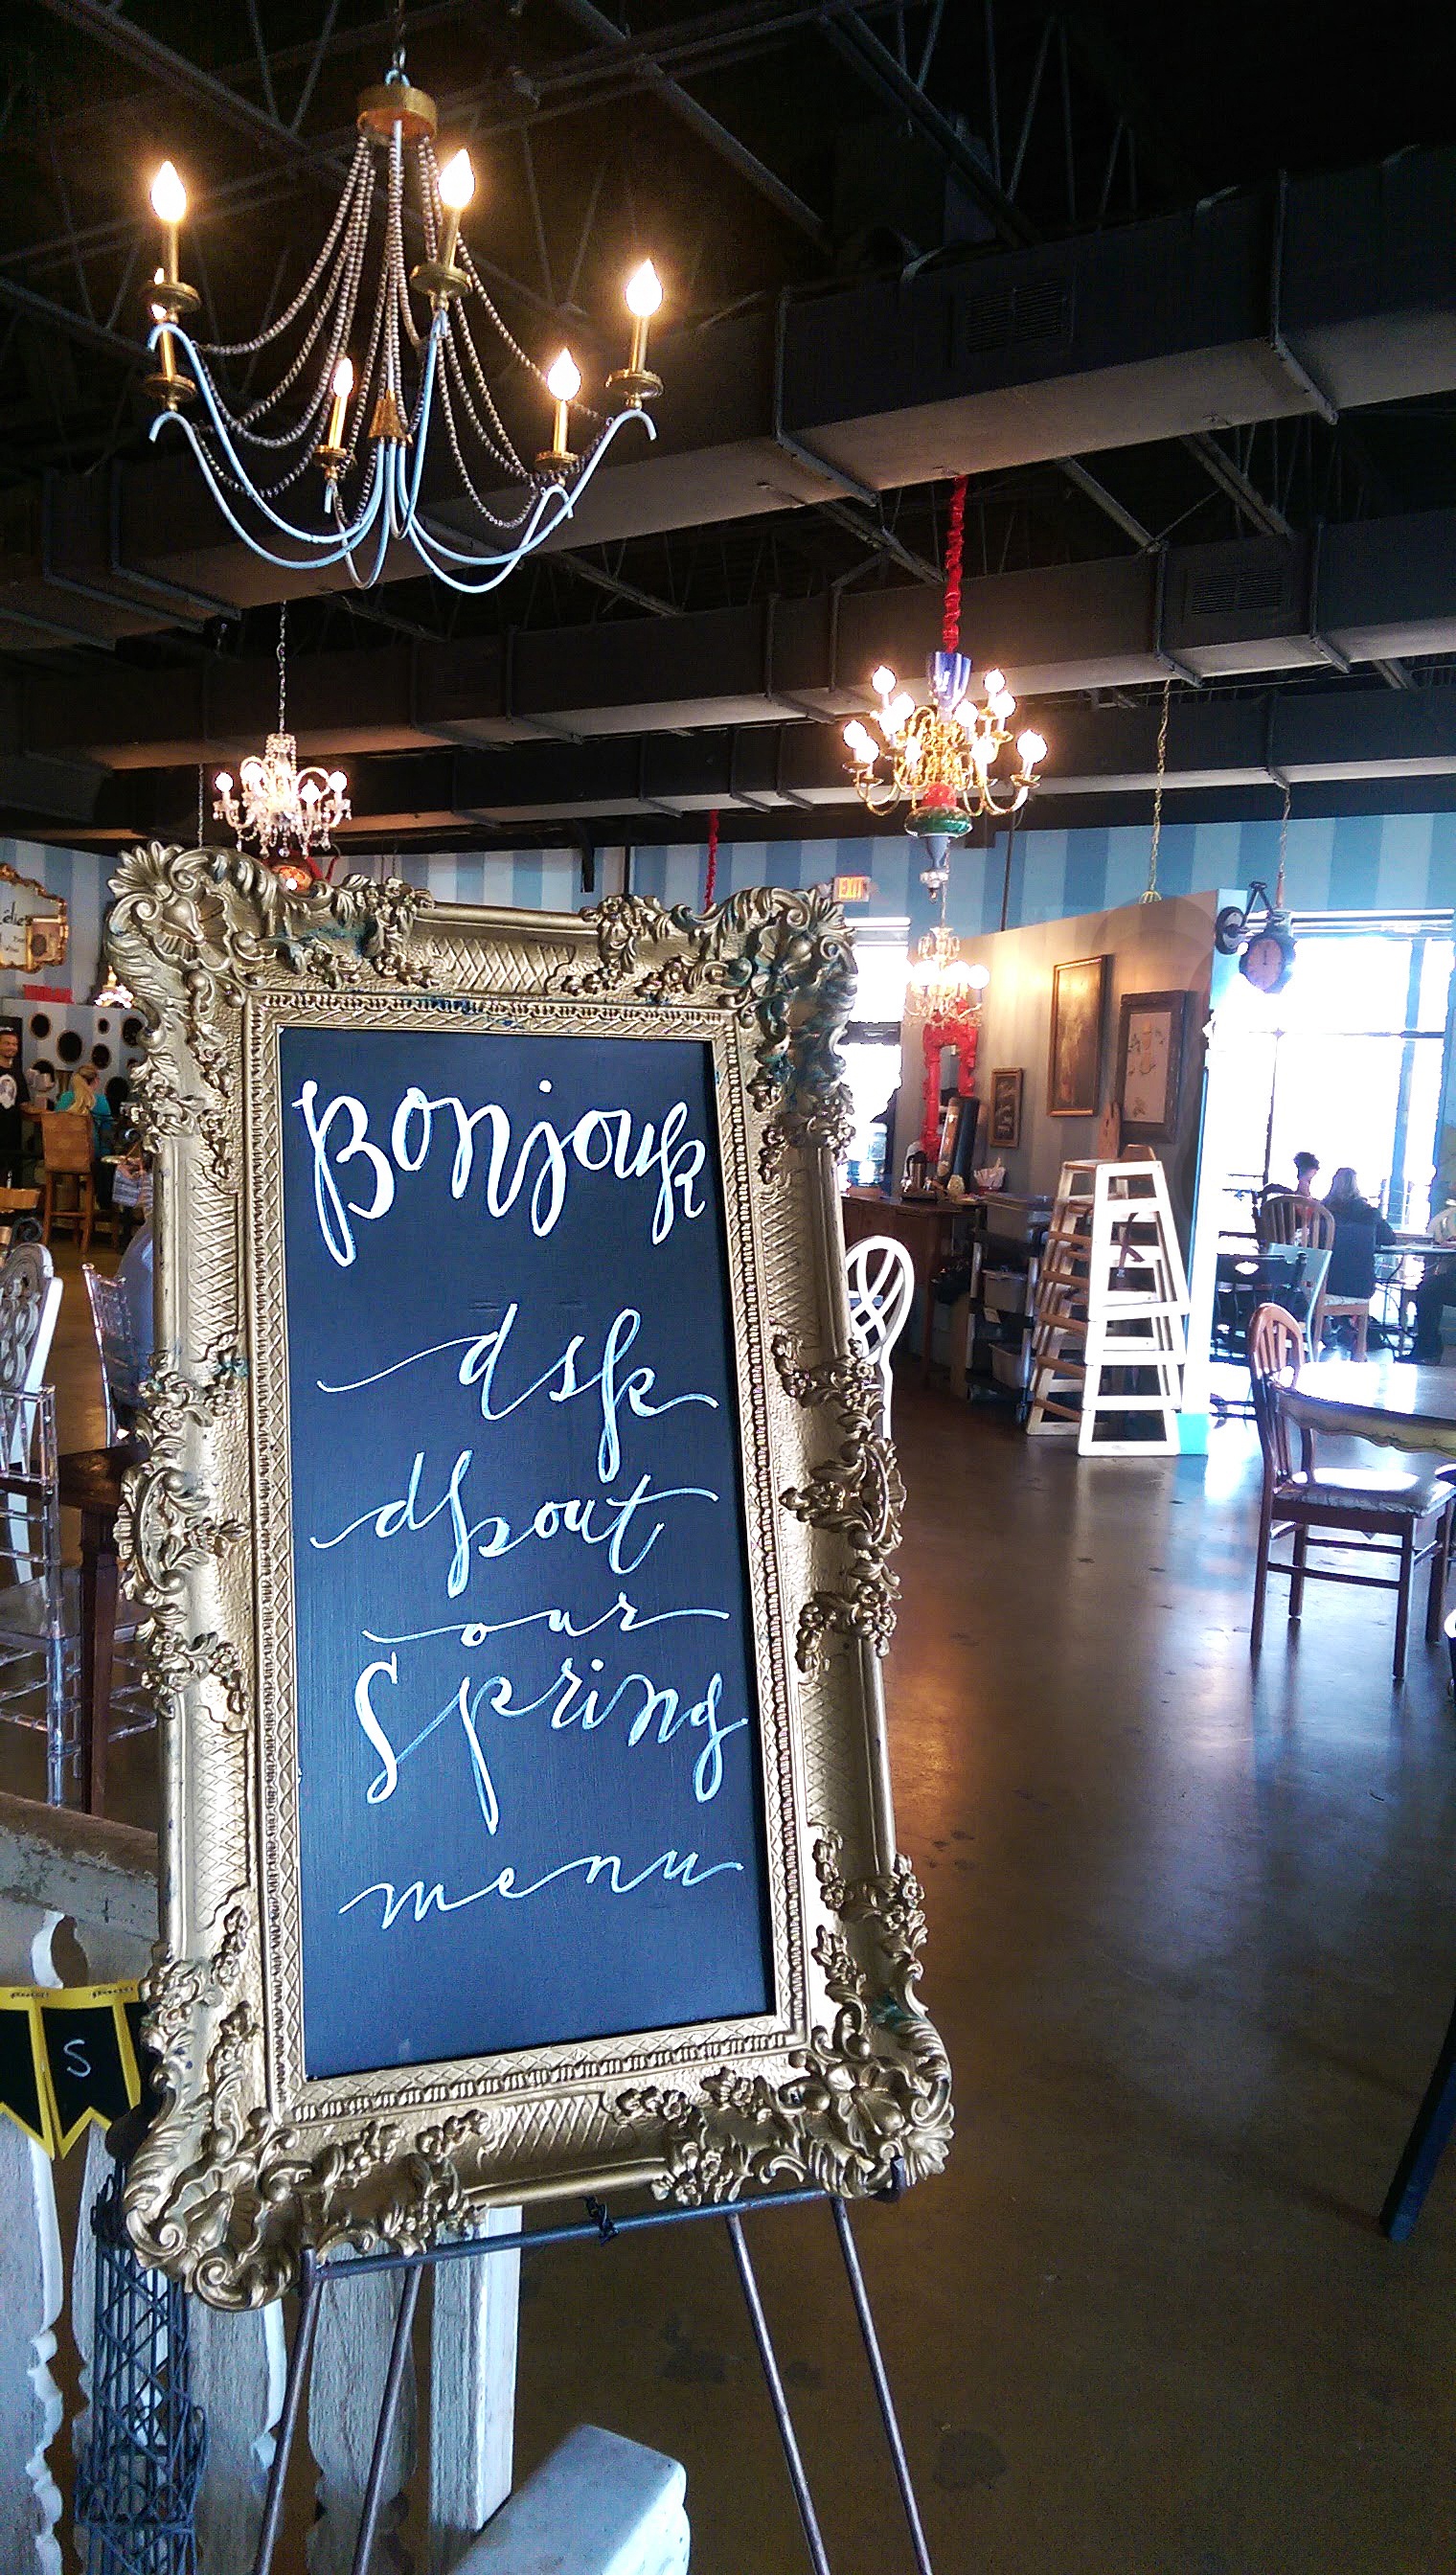 Bonjour
ask
about
our
Spring
menu
EXIT
S